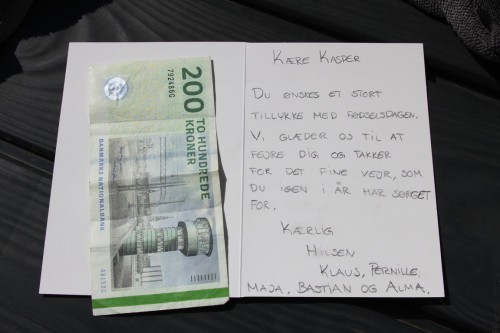 200 TO HUNDREDE
KRONER
792486G
DANMARKS NATIONALBANK
KÆRE KASPER
DU ØNSKES ET STORT
TILLYKKE MED FØDSELSDAGEN.
VI GLÆDER OS TIL AT
FEJRE DIG OG TAKKER
FOR DET FINE VEJR, SOM
DU IGEN I ÅR HAR SØRGET
FOR.
KÆRLIG
HILSEN
KLAUS, PERNILLE,
MAJA, BASTIAN OG ALMA.